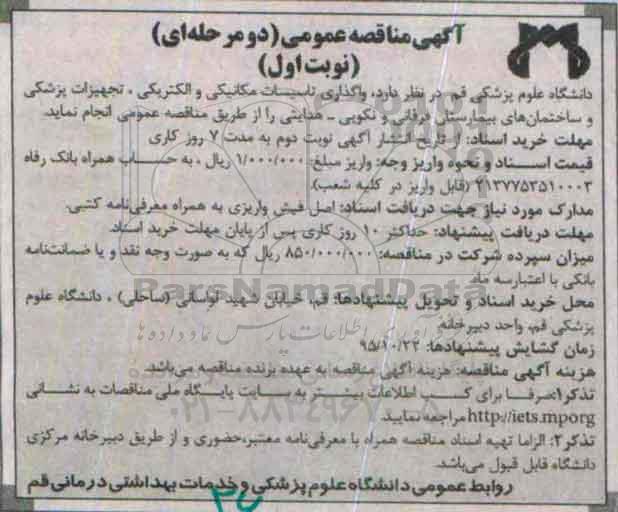 آگهی مناقصه عمومی (دو مرحله‌ای)
(نوبت اول)
دانشگاه علوم پزشکی قم در نظر دارد، واگذاری تاسیسات مکانیکی و الکتریکی ، تجهیزات پزشکی
و ساختمان‌های بیمارستان فرقانی و نکویی - هدایتی را از طریق مناقصه عمومی انجام نماید.
مهلت خرید اسناد: از تاریخ انتشار آگهی نوبت دوم به مدت ۷ روز کاری
قیمت اسناد و نحوه واریز وجه: واریز مبلغ: ۱/۰۰۰/۰۰۰ ریال ، به حساب همراه بانک رفاه
۲۱۳۷۷۵۳۵۱۰۰۰۳ (قابل واریز در کلیه شعب).
مدارک مورد نیاز جهت دریافت اسناد: اصل فیش واریزی به همراه معرفی‌نامه کتبی.
مهلت دریافت پیشنهاد: حداکثر ۱۰ روز کاری پس از پایان مهلت خرید اسناد.
میزان سپرده شرکت در مناقصه: ۸۵۰/۰۰۰/۰۰۰ ریال که به صورت وجه نقد و یا ضمانتنامه
بانکی با اعتبار سه ماه
محل خرید اسناد و تحویل پیشنهادها: قم، خیابان شهید لواسانی (ساحلی) ، دانشگاه علوم
پزشکی قم، واحد دبیرخانه.
زمان گشایش پیشنهادها: ۹۵/۱۰/۲۲
هزینه آگهی مناقصه: هزینه آگهی مناقصه به عهده برنده مناقصه می‌باشد.
تذکر۱: صرفا برای کسب اطلاعات بیشتر به سایت پایگاه ملی مناقصات به نشانی
http://iets.mporg مراجعه نمایید.
تذکر۲: الزاما تهیه اسناد مناقصه همراه با معرفی‌نامه معتبر، حضوری و از طریق دبیرخانه مرکزی
دانشگاه قابل قبول می‌باشد.
روابط عمومی دانشگاه علوم پزشکی و خدمات بهداشتی درمانی قم
ParsNamadData
۰۲۱-۸۸۳۴۹۶۷۰